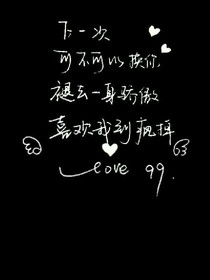 下一次
可不可以换你
褪去一身骄傲
喜欢我到疯掉
Love 99.